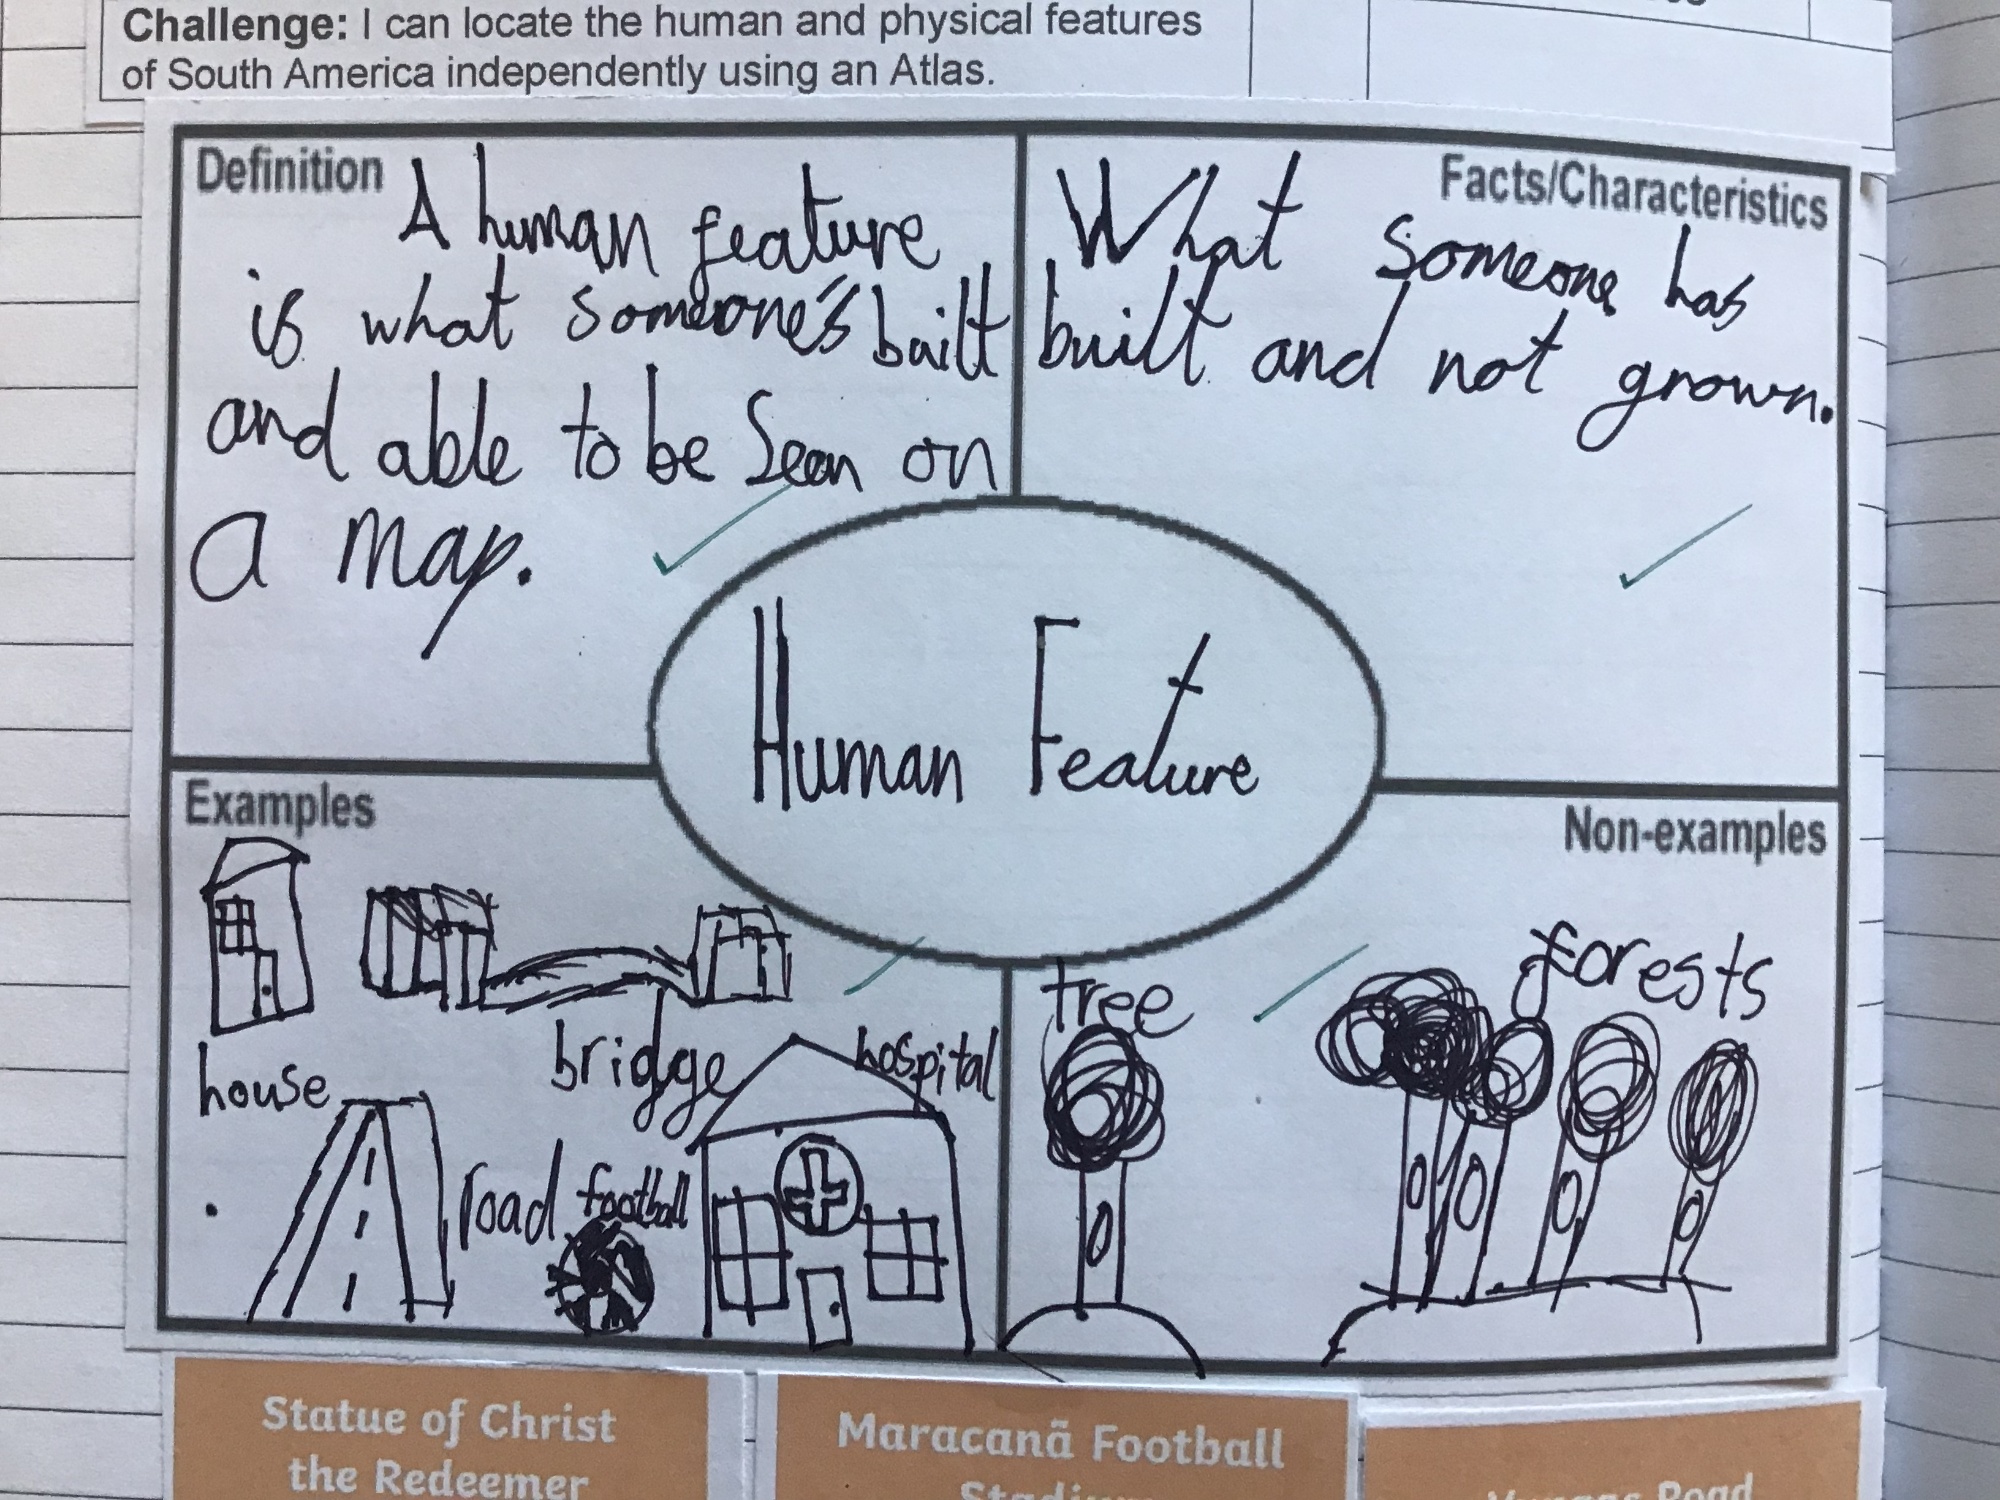 Challenge: I can locate the human and physical features
of South America independently using an Atlas.
Definition
A human feature
is what someone's built
and able to be seen on
a map.
Facts/Characteristics
What someone has
built and not grown.
Human Feature
Examples
house
bridge
hospital
road
football
Non-examples
tree
forests
Statue of Christ
the Redeemer
Maracanã Football
Stadium
Road